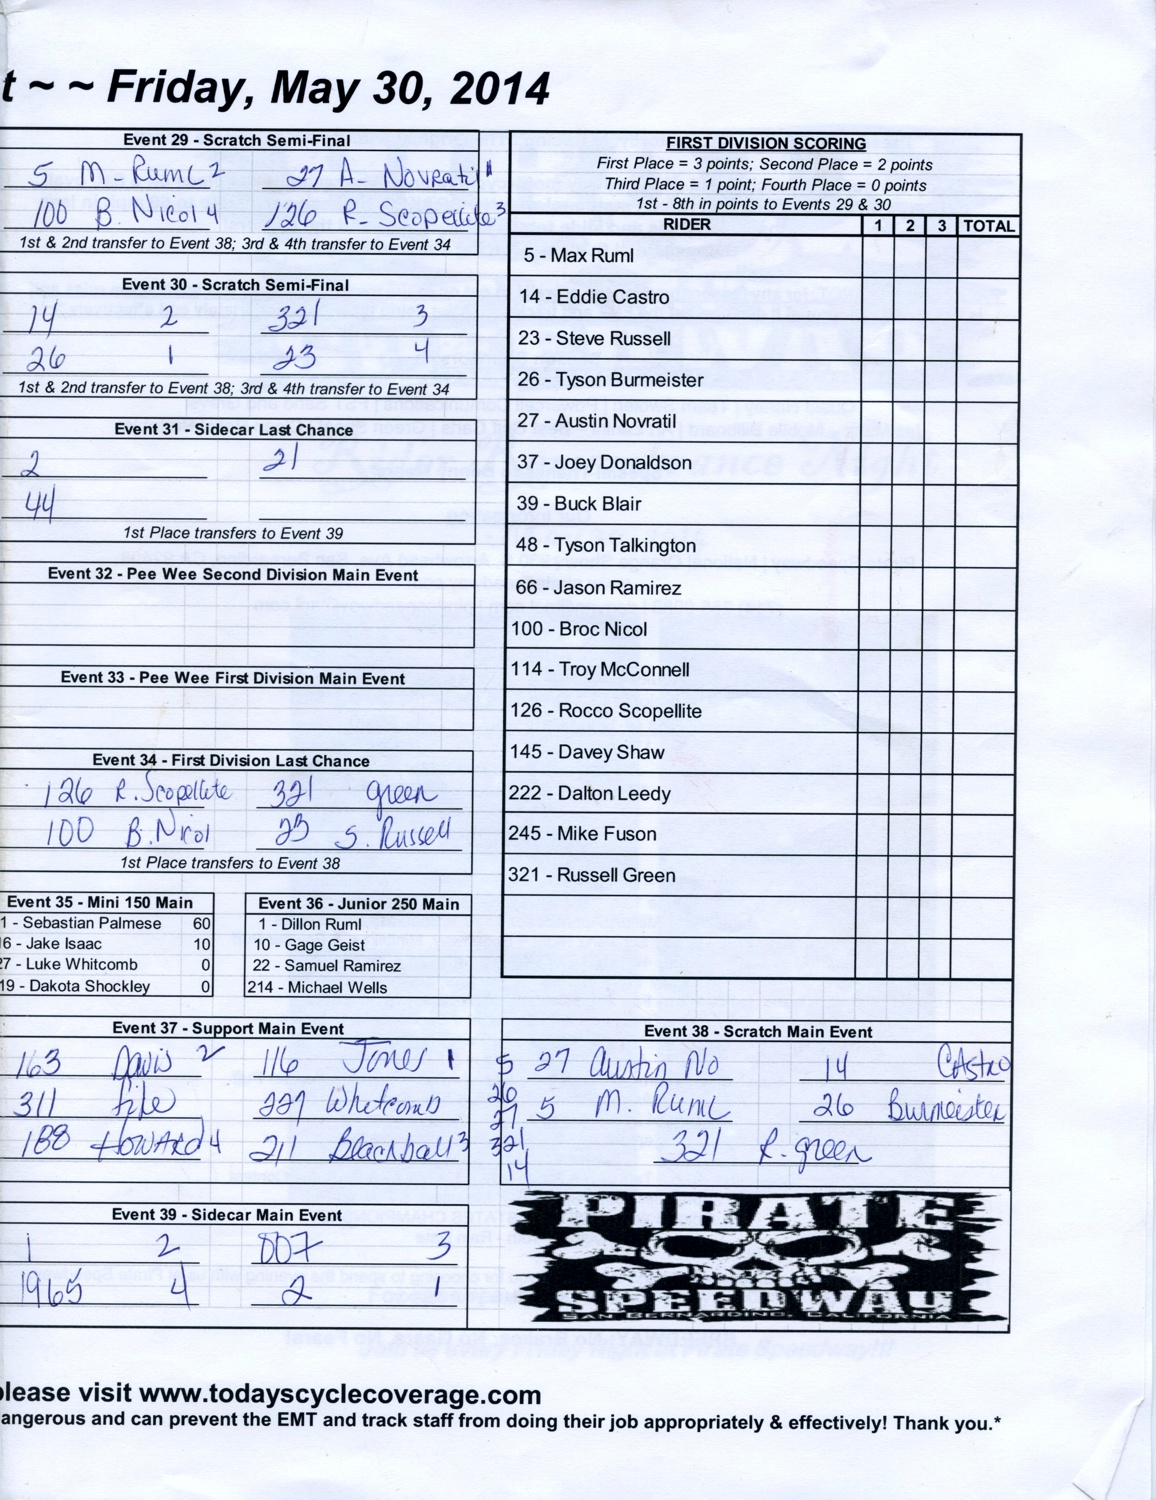 t ~ ~ Friday, May 30, 2014
Event 29 - Scratch Semi-Final
5 M. Ruml 2 27 A. Novratil 1
100 B. Nicol 4 126 R. Scopellite 3
1st & 2nd transfer to Event 38; 3rd & 4th transfer to Event 34
Event 30 - Scratch Semi-Final
14 2 321 3
26 1 23 4
1st & 2nd transfer to Event 38; 3rd & 4th transfer to Event 34
Event 31 - Sidecar Last Chance
2 21
44
1st Place transfers to Event 39
Event 32 - Pee Wee Second Division Main Event
Event 33 - Pee Wee First Division Main Event
Event 34 - First Division Last Chance
126 R. Scopellite 321 green
100 B. Nicol 23 S. Russell
1st Place transfers to Event 38
Event 35 - Mini 150 Main
1 - Sebastian Palmese 60
6 - Jake Isaac 10
27 - Luke Whitcomb 0
19 - Dakota Shockley 0
Event 36 - Junior 250 Main
1 - Dillon Ruml
10 - Gage Geist
22 - Samuel Ramirez
214 - Michael Wells
Event 37 - Support Main Event
163 Davis 2 116 Jones 1
311 File 227 Whitcomb
188 HOWARD 4 211 Blackball 3
Event 39 - Sidecar Main Event
1 2 007 3
1965 4 2 1
FIRST DIVISION SCORING
First Place = 3 points; Second Place = 2 points
Third Place = 1 point; Fourth Place = 0 points
1st - 8th in points to Events 29 & 30
RIDER 1 2 3 TOTAL
5 - Max Ruml
14 - Eddie Castro
23 - Steve Russell
26 - Tyson Burmeister
27 - Austin Novratil
37 - Joey Donaldson
39 - Buck Blair
48 - Tyson Talkington
66 - Jason Ramirez
100 - Broc Nicol
114 - Troy McConnell
126 - Rocco Scopellite
145 - Davey Shaw
222 - Dalton Leedy
245 - Mike Fuson
321 - Russell Green
Event 38 - Scratch Main Event
5 27 Austin No 14 CAstro
26
27 5 M. Ruml 26 Burmeister
321 321 R. green
14
PIRATE
SPEEDWAY
SAN BERNARDINO, CALIFORNIA
please visit www.todayscyclecoverage.com
angerous and can prevent the EMT and track staff from doing their job appropriately & effectively! Thank you.*